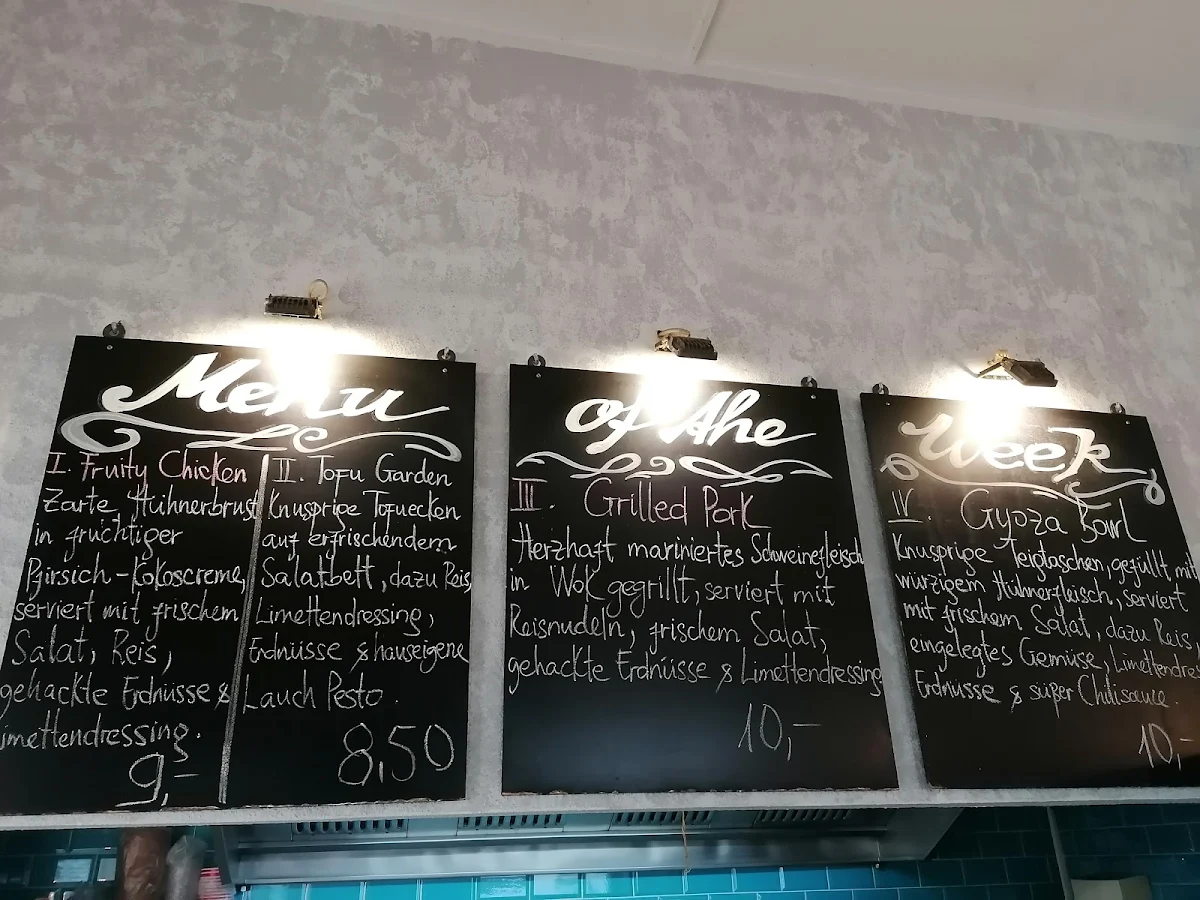 Menu
I. Fruity Chicken
Zarte Hühnerbrust
in fruchtiger
Pfirsich-Kokoscreme,
serviert mit frischem
Salat, Reis,
gehackte Erdnüsse &
Limettendressing.
9,-
II. Tofu Garden
Knusprige Tofuecken
auf erfrischendem
Salatbett, dazu Reis,
Limettendressing,
Erdnüsse & hauseigene
Lauch Pesto.
8,50
of the
III. Grilled Pork
Herzhaft mariniertes Schweinefleisch
in Wok gegrillt, serviert mit
Reisnudeln, frischem Salat,
gehackte Erdnüsse & Limettendressing
10,-
Week
IV. Gyoza Bowl
Knusprige Teigtaschen, gefüllt mit
würzigem Hühnerfleisch, serviert
mit frischem Salat, dazu Reis,
eingelegtes Gemüse, Limettendres
Erdnüsse & süßer Chilisauce.
10,-